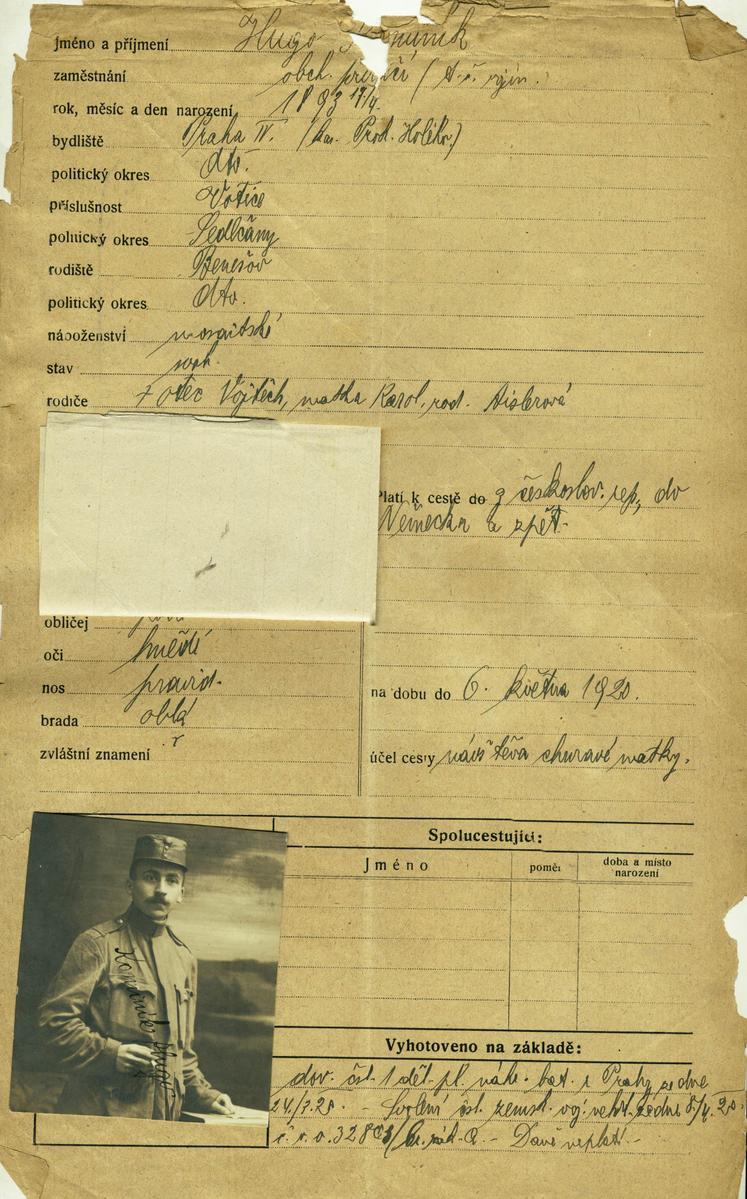 jméno a příjmení Hugo
zaměstnání obch.
rok, měsíc a den narození 1893 19/4.
bydliště Praha IV. (kas. Prok. Holého)
politický okres dto.
příslušnost Votice
politický okres Sedlčany
rodiště Benešov
politický okres dto.
náboženství mosaitské
stav svob.
rodiče otec Vojtěch, matka Karol, rod. Aislerová
Platí k cestě do z českoslov. rep. do
Německa a zpět.
obličej
oči hnědé
nos pravid.
brada oblá
zvláštní znamení
na dobu do 6. května 1920.
účel cesty návštěva churavé matky.
Spolucestující:
Jméno poměr doba a místo
narození
Vyhotoveno na základě:
dov. List 1 děl. pl. náhr. bat. z Prahy ze dne
24./3.20. - Svolení zemsk. voj. velit. ze dne 8./4. 20
Hugo